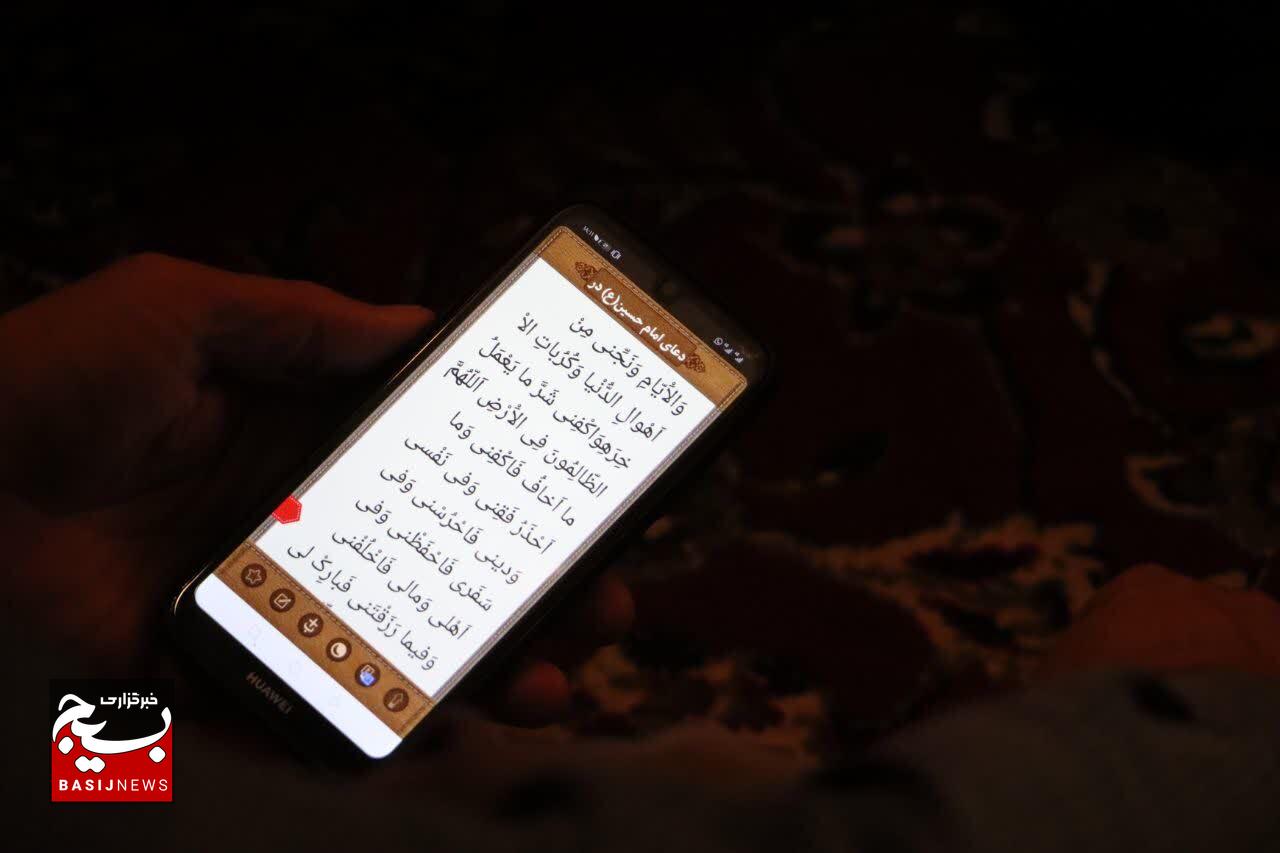 دعای امام حسین(ع) در
وَالْاَیّامِ وَنَجِّنی مِنْ
اَهْوالِ الدُّنْیا وَکُرُباتِ الاْ
خِرَهِوَاکْفِنی شَرَّ ما یَعْمَلُ
الظّالِمُونَ فِی الْاَرْضِ اَللّهُمَّ
ما اَخافُ فَاکْفِنی وَما
اَحْذَرُ فَقِنی وَفی نَفْسی
وَدینی فَاحْرُسْنی وَفی
سَفَری فَاحْفَظْنی وَفی
اَهْلی وَمالی فَاخْلُفْنی
وَفیما رَزَقْتَنی فَبارِکْ لی
HUAWEI
خبرگزاری
بسیج
BASIJNEWS